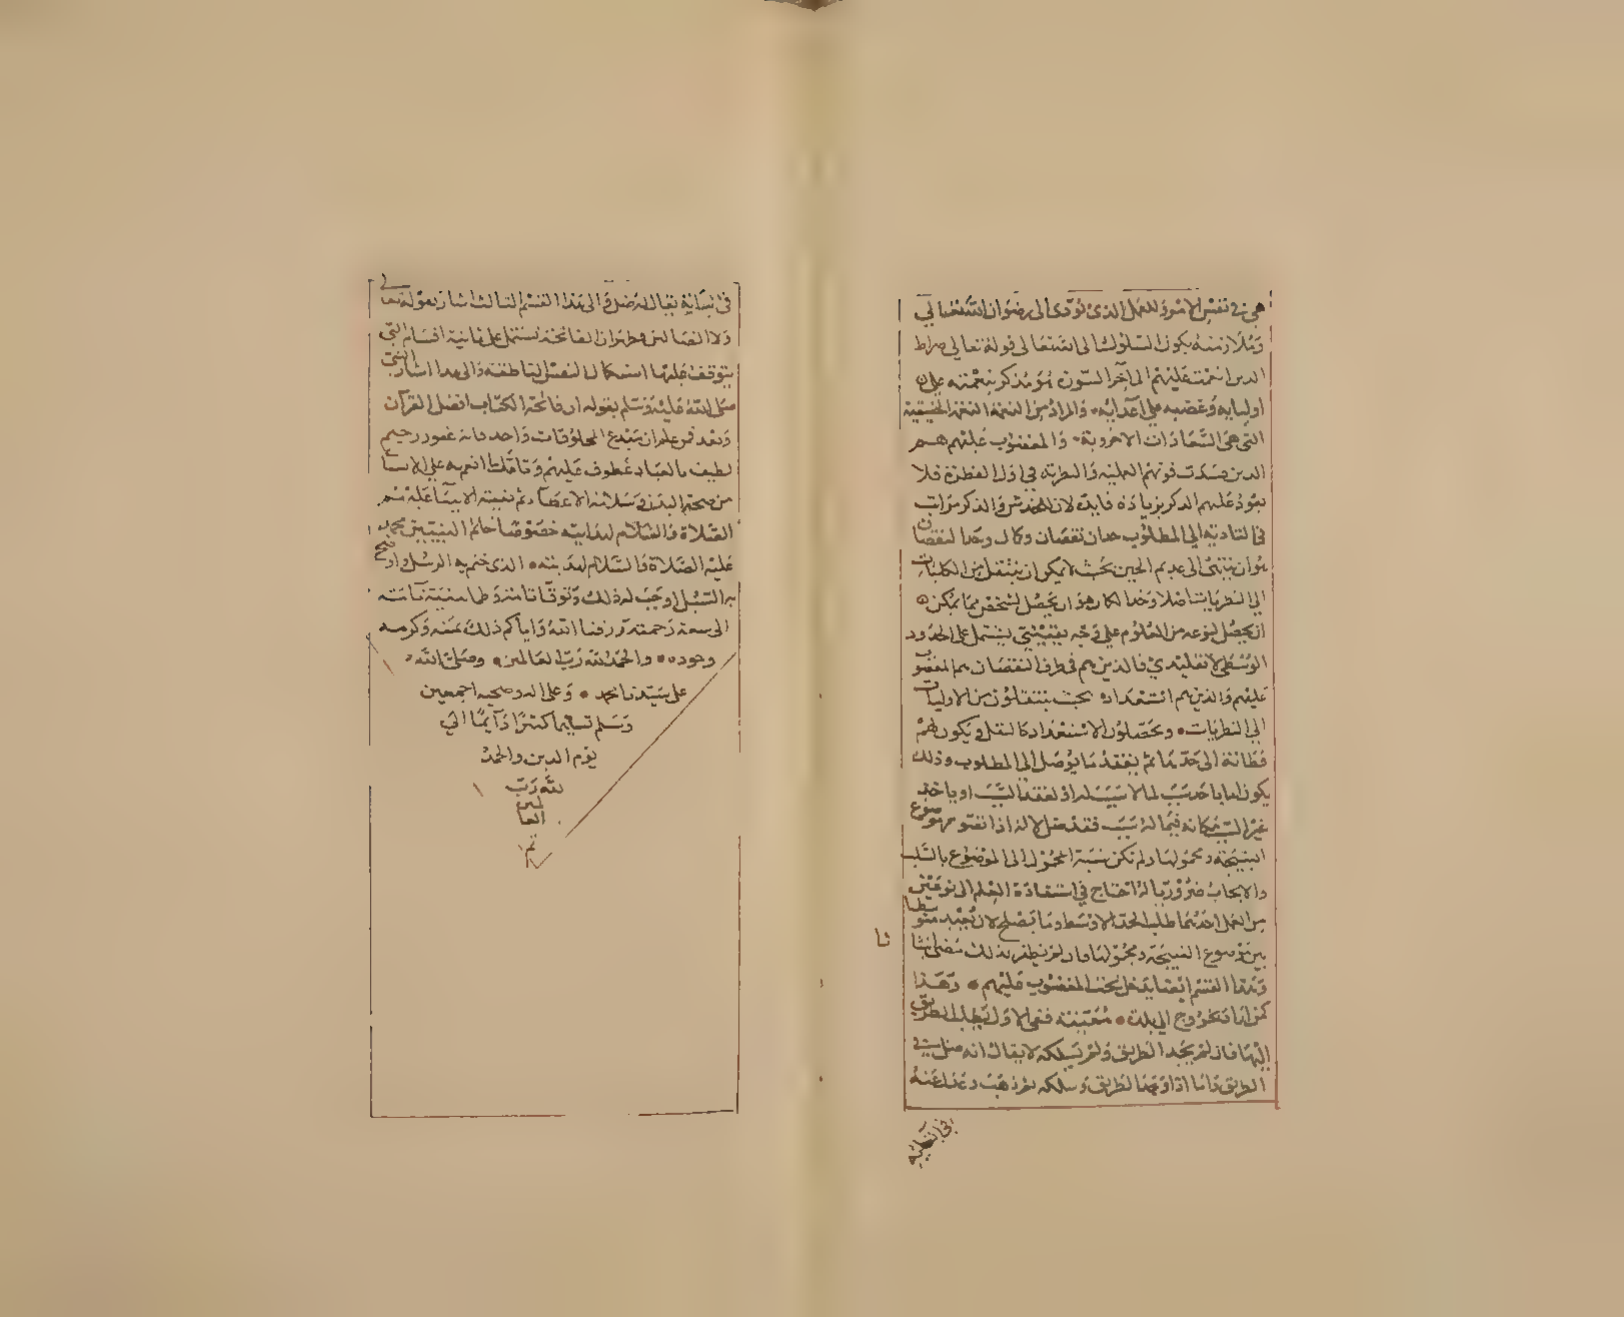 هى فى نفس الامر وللعمل الذى يؤدى الى رضوان الله تعالى
وملازمته يكون السلوك الى الله تعالى قوله تعالى صراط
الذين انعمت عليهم الى آخر السورة مذكر بنعمته على
اوليايه وغضبه على اعدايه والمراد من النعمة النعمة الحقيقية
التى هى السعادات الاخروية والمغضوب عليهم هم
الذين فسدت قوتهم العلمية والنظرية فى اول الفطرة فلا
يعود عليهم الذكر بزيادة فايدة لان للحدس والذكر مراتب
فى التادية الى المطلوب حدان نقصان وكمال وحد النقصان
هو ان ينتهى الى عديم الحدس بحيث لا يمكن ان ينتقل من الكليات
الى النظريات اصلا وحد الكمال هو ان يحصل لشخص مما يمكن
ان يحصل لنوعه من العلوم على وجه يقينى يشتمل على الحدود
الوسطى لا تقليدى فالذين هم فى طرف النقصان هم المغضوب
عليهم والذين هم استعداد بحيث ينتقلون من الاوليات
الى النظريات ويحصلون الاستعداد كالنقل ويكون لهم
فطانة الى حد ما ثم يفقد ما يوصل الى المطلوب وذلك
يكون اما باخذ سبب لما لا سبب له او لفقد السبب او ياخذ
غير السبب مكانه فيما له سبب فقد ضل لانه اذا تقوم موضوع
النتيجة ومحمولها ولم تكن نسبة المحمول الى الموضوع بالسلب
والايجاب ضروريا له احتاج فى استفادة العلم الى نوعين
من العمل احدهما طلب الحد الاوسط وما يصلح لان يجعل متوسطا
بين موضوع النتيجة ومحمولها وان لم يظفر بذلك
وهذا القسم ايضا يدخل تحت المغضوب عليهم وهذا
كمن اراد الخروج الى بلدة معينة ففى الاول يطلب الطريق
اليها فان لم يجد الطريق ولم يسلكه لا يقال انه ضل فى
الطريق واما اذا وجد الطريق وسلكه ثم ذهب وعدل عنه
ثا
فى انسانية يقال انه ضل والى هذا القسم الثالث اشار بقوله تعالى
ولا الضالين وظهر ان الفاتحة تشتمل على ثمانية اقسام التى
يتوقف عليها استكمال النفس الناطقة والى هذا اشار النبى
صلى الله عليه وسلم بقوله ان فاتحة الكتاب افضل القرآن
وبعد فمن علم ان مبدع المخلوقات واحد فانه غفور رحيم
لطيف بالعباد عطوف عليهم وتأمل ما انعم به على الانسان
من صحة البدن وسلامة الاعضاء ثم نعمة الانبياء عليهم
الصلاة والسلام لهدايته خصوصا خاتم النبيين محمد
عليه الصلاة والسلام الذى ختم به الرسل واوضح
به السبل اوجب له ذلك وثوقا تاما وطمانينة تامة
الى سعة رحمته رزقنا الله واياكم ذلك بمنه وكرمه
وجوده والحمد لله رب العالمين وصلى الله
على سيدنا محمد وعلى اله وصحبه اجمعين
وسلم تسليما كثيرا دائما الى
يوم الدين والحمد
لله رب
العالمين
تم